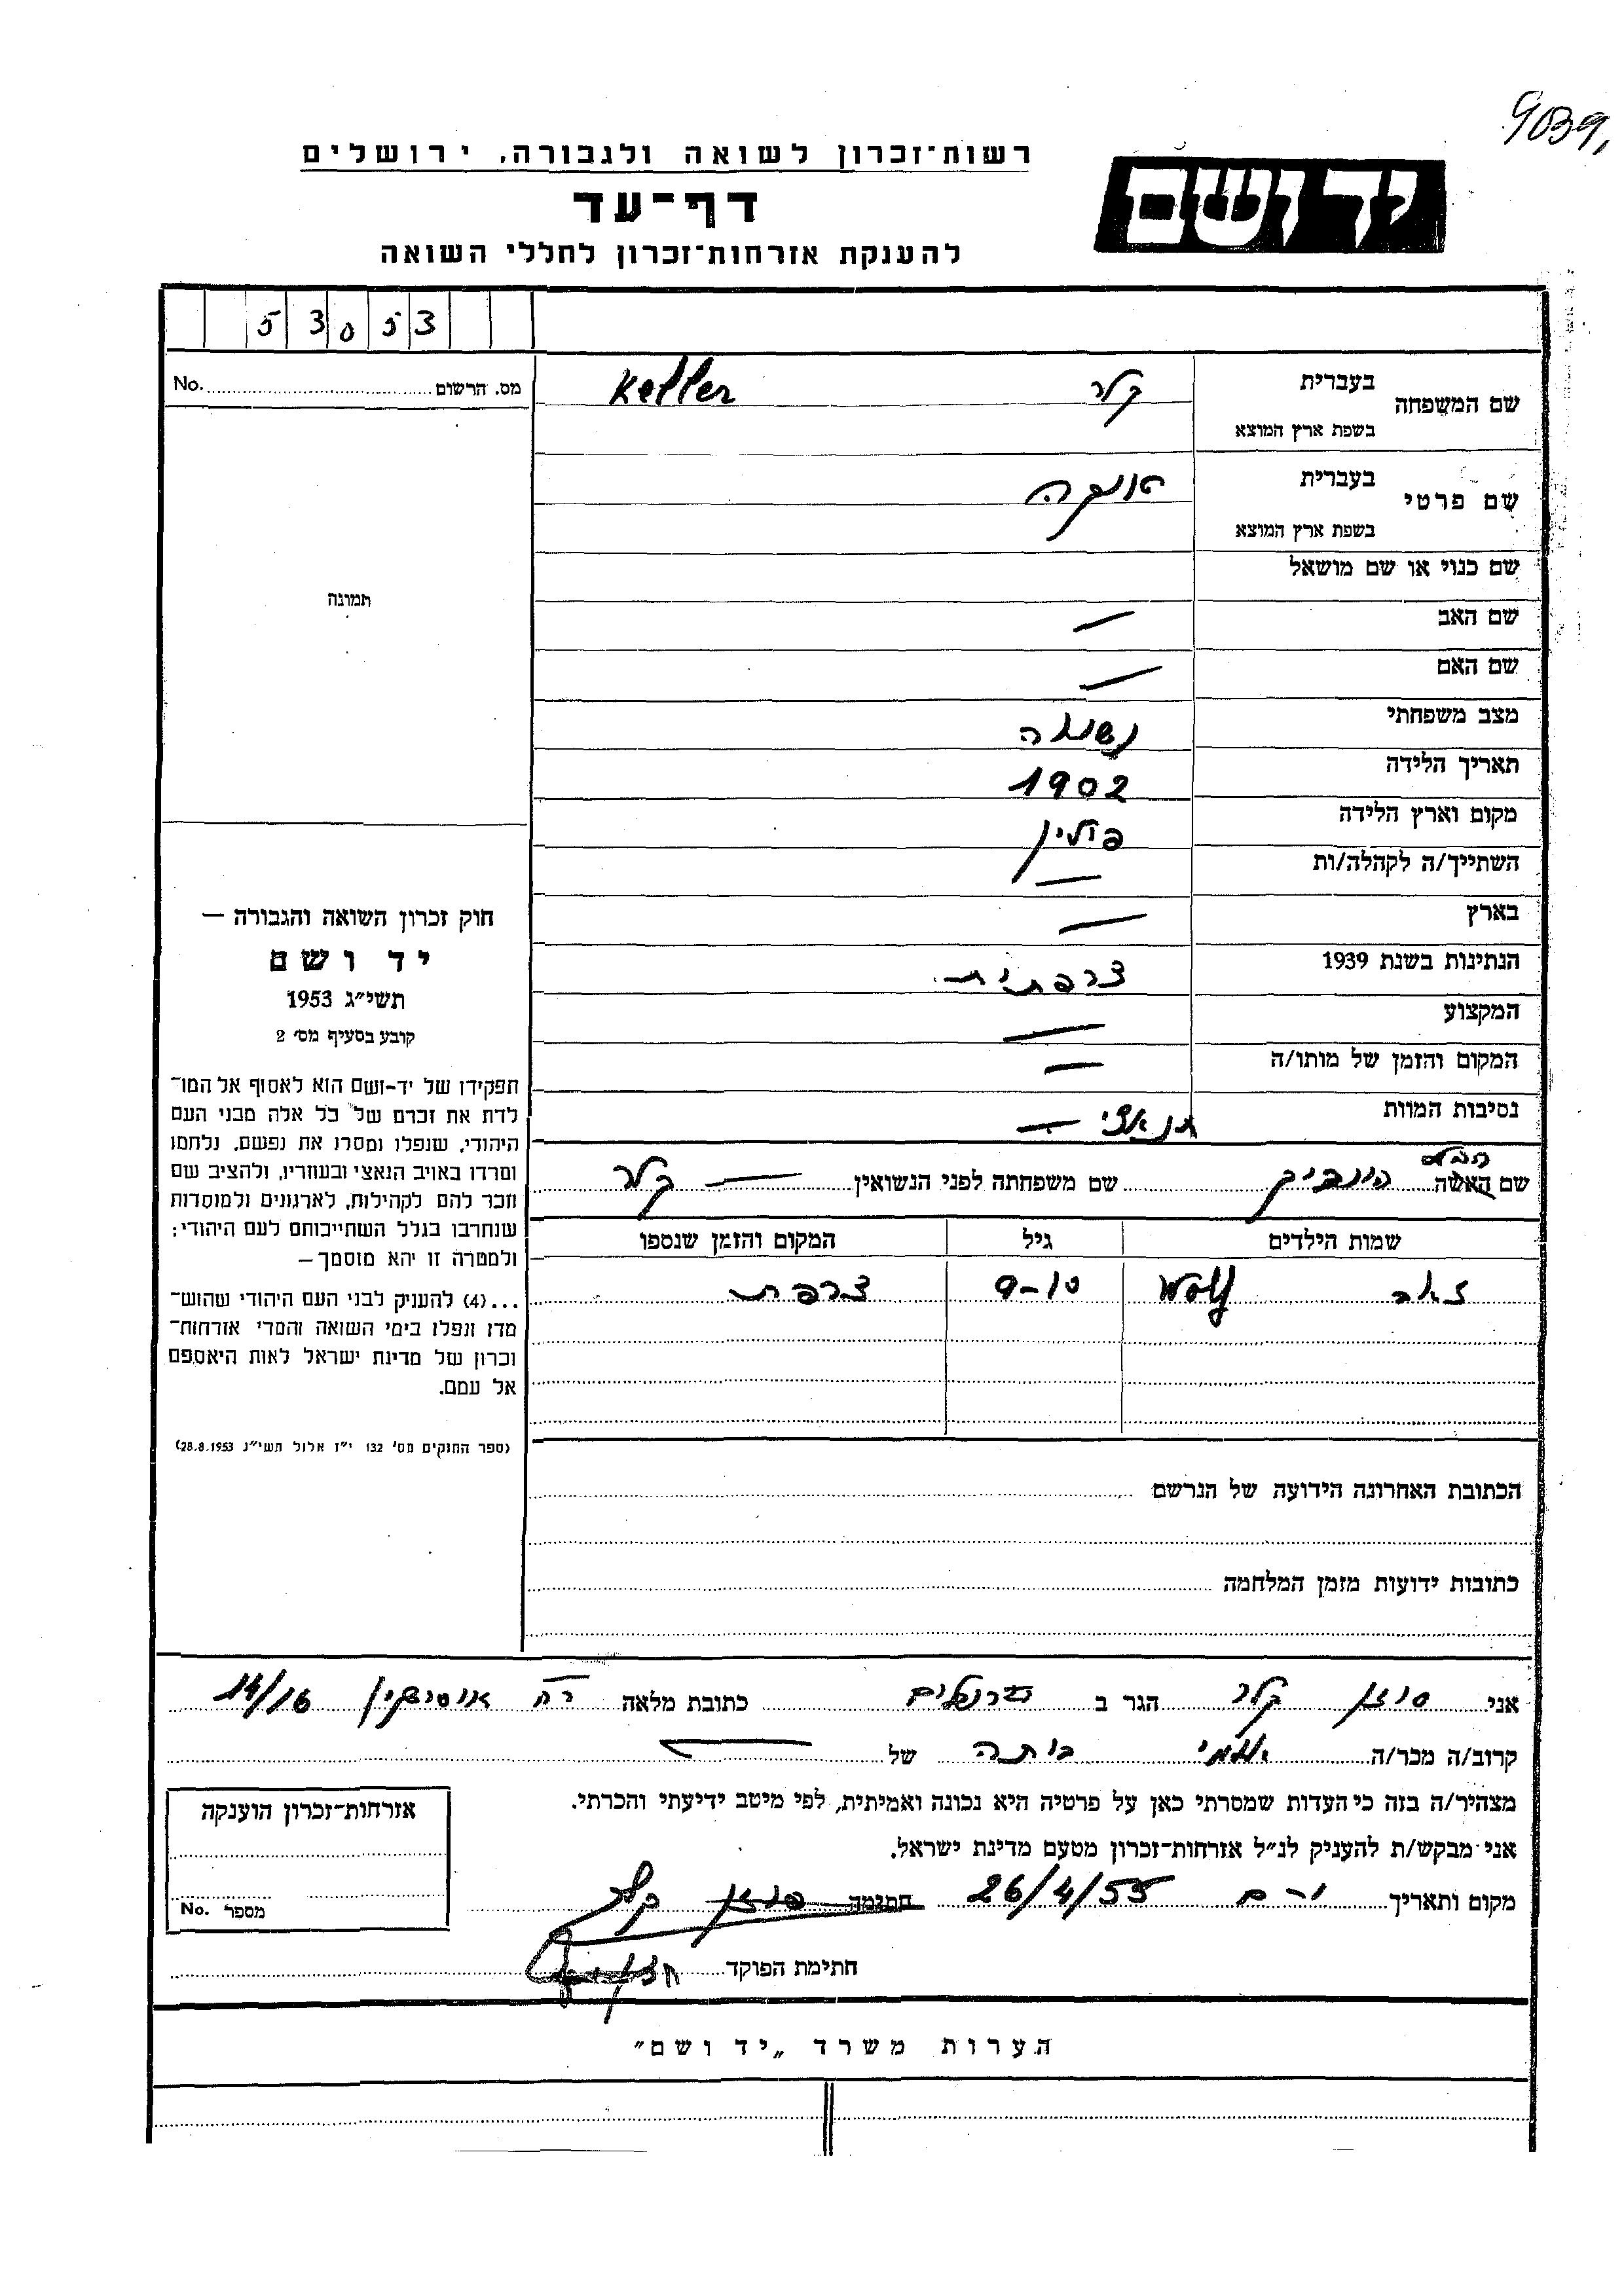 9039,
יד ושם
רשות־זכרון לשואה ולגבורה, ירושלים
דף־עד
להענקת אזרחות־זכרון לחללי השואה
5 3 0 5 3
No. מס. הרשום
שם המשפחה בעברית קלר Keller
בשפת ארץ המוצא
שם פרטי בעברית
בשפת ארץ המוצא
שם כנוי או שם מושאל
שם האב —
שם האם —
מצב משפחתי נשואה
תאריך הלידה 1902
מקום וארץ הלידה פולין
השתייך/ה לקהלה/ות —
בארץ —
הנתינות בשנת 1939 צרפתית
המקצוע —
המקום והזמן של מותו/ה —
נסיבות המוות —
שם האשה שם משפחתה לפני הנשואין — קלר
שמות הילדים גיל המקום והזמן שנספו
זאב Wolf 9-10 צרפת
הכתובת האחרונה הידועה של הנרשם
כתובות ידועות מזמן המלחמה
תמונה
חוק זכרון השואה והגבורה —
יד ושם
תשי״ג 1953
קובע בסעיף מס׳ 2
תפקידו של יד-ושם הוא לאסוף אל המו־
לדת את זכרם של כל אלה מבני העם
היהודי, שנפלו ומסרו את נפשם, נלחמו
ומרדו באויב הנאצי ובעוזריו, ולהציב שם
וזכר להם לקהילות, לארגונים ולמוסדות
שנחרבו בגלל השתייכותם לעם היהודי;
ולמטרה זו יהא מוסמך—
...(4) להעניק לבני העם היהודי שהוש־
מדו ונפלו בימי השואה והמרי אזרחות־
זכרון של מדינת ישראל לאות היאספם
אל עמם.
(ספר החוקים מס׳ 132 י״ז אלול תשי״ג 28.8.1953)
אני סוזן קלר הגר ב ירושלים כתובת מלאה רח 14/16
קרוב/ה מכר/ה של
מצהיר/ה בזה כי העדות שמסרתי כאן על פרטיה היא נכונה ואמיתית, לפי מיטב ידיעתי והכרתי.
אני מבקש/ת להעניק לנ״ל אזרחות־זכרון מטעם מדינת ישראל.
מקום ותאריך י-ם 26/4/55 חתימה סוזן קלר
חתימת הפוקד
אזרחות־זכרון הוענקה
No. מספר
הערות משרד „יד ושם״